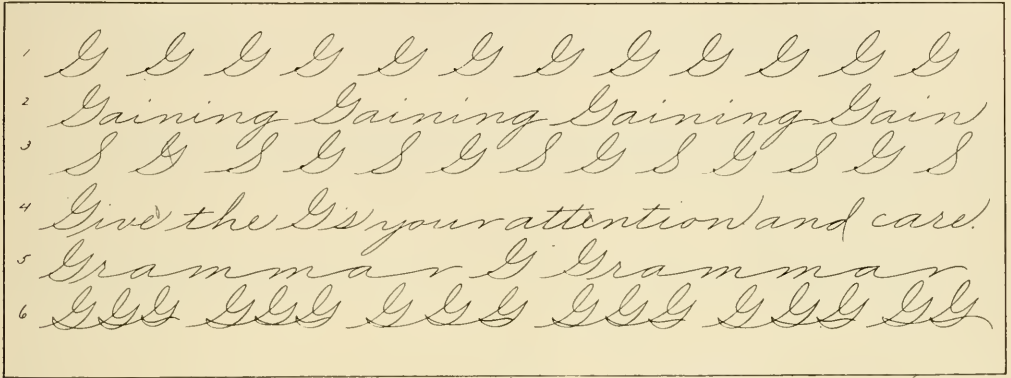 1 G G G G G G G G G G G G
2 Gaining Gaining Gaining Gain
3 S G S G S G S G S G S G S
4 Give the G's your attention and care.
5 Grammar G Grammar
6 GGG GGG G G G GGG GGG GG